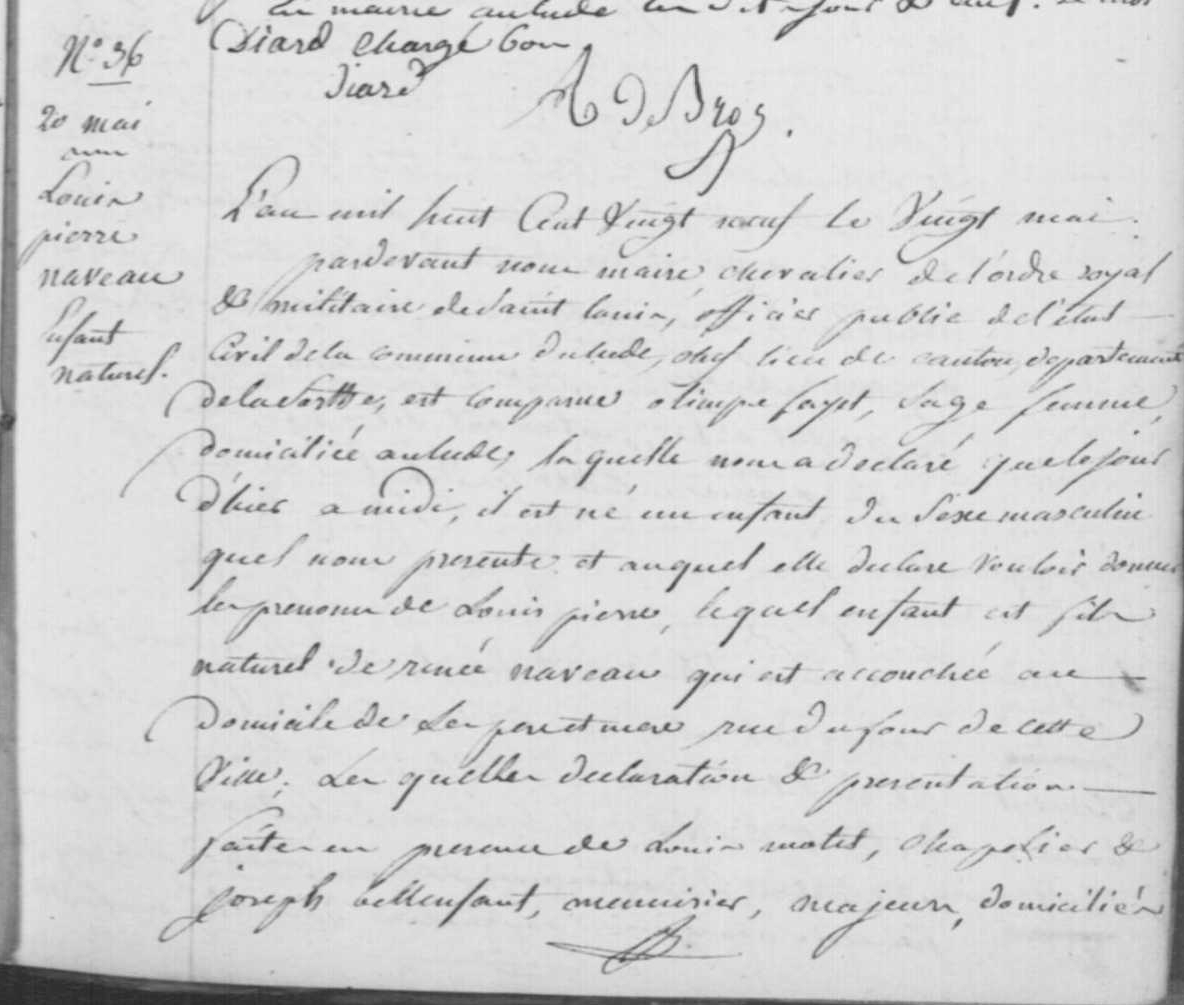 la mairie au lude les dit jour & an
Diard Chargé bon
Diard
A DeBros.
N.o 36
20 mai
Louis
pierre
naveau
Enfant
naturel.
L'an mil huit Cent Vingt neuf le Vingt mai.
pardevant nous maire chevalier de l'ordre royal
& militaire de saint louis, officier public de l'état
Civil de la commune du lude, chef lieu de canton, departement
de la sarthe, est comparue olimpe sage femme,
domiciliée au lude, laquelle nous a declaré que le jour
d'hier a midi, il est né un enfant du sexe masculin
quel nous presente et auquel elle declare vouloir donner
les prenoms de Louis pierre, lequel enfant est fils
naturel de renée naveau qui est accouchée au
domicile de ses pere et mere rue du four de cette
Ville. Les quelles declaration & presentation
faites en presence de Louis motet, chapelier &
joseph bellenfant, menuisier, majeurs, domiciliés